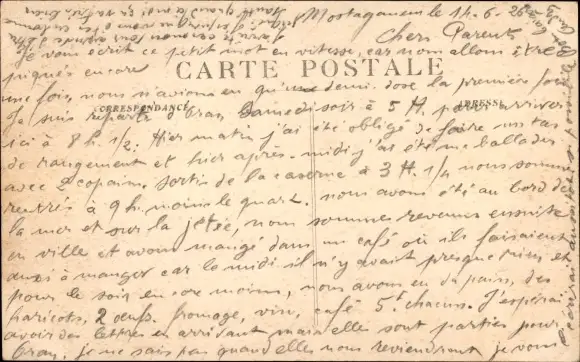 Mostaganem le 14-6-26
Chers Parents
Je vous écrit ce petit mot en vitesse, car nous allons être
piqués encore
CARTE POSTALE
une fois, nous n'avions eu qu'une demi dose la première fois
CORRESPONDANCE
ADRESSE
Je suis reparti d'Oran Samedi soir à 5 H. pour arriver
ici à 8 h. 1/2. Hier matin j'ai été obligé de faire un tas
de rangement et hier après-midi j'ai été me ballader
avec 2 copains sortis de la caserne à 3 H. 1/4 nous sommes
rentrés à 9 h. moins le quart. nous avons été au bord de
la mer et sur la jetée, nous sommes revenus ensuite
en ville et avons mangé dans un café où ils faisaient
aussi à manger car le midi il n'y avait presque rien et
pour le soir encore moins, nous avons eu du pain, des
haricots, 2 oeufs, fromage, vin, café 5f chacun. J'espérais
avoir des lettre en arrivant mais elles sont parties pour
Oran, je ne sais pas quand elles nous reviendront je vous
écrirai aussitôt que possible